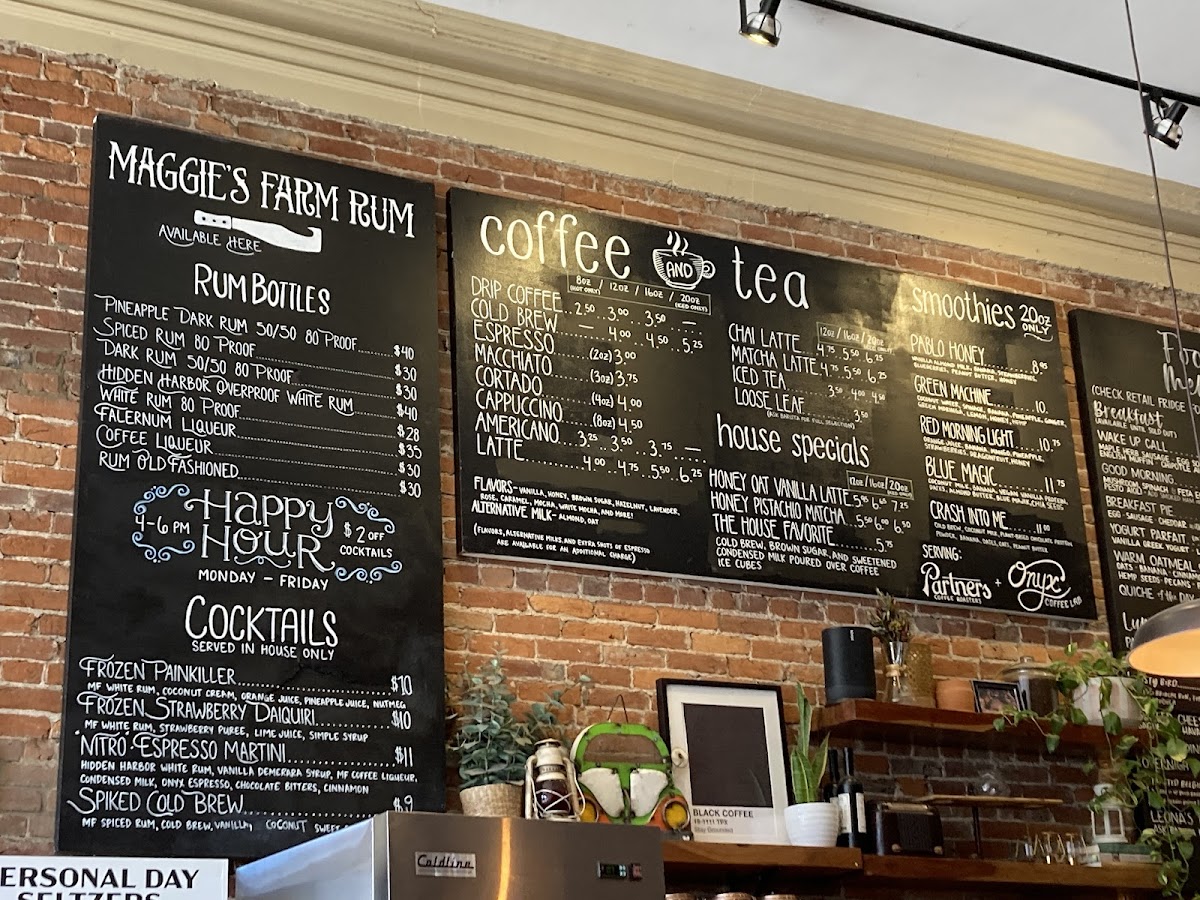 MAGGIE'S FARM RUM
AVAILABLE HERE
RUM BOTTLES
PINEAPPLE DARK RUM 50/50 80 PROOF $40
SPICED RUM 80 PROOF $30
DARK RUM 50/50 80 PROOF $30
HIDDEN HARBOR OVERPROOF WHITE RUM $40
WHITE RUM 80 PROOF $28
FALERNUM LIQUEUR $35
COFFEE LIQUEUR $30
RUM OLD FASHIONED $30
4-6 PM HAPPY HOUR $2 OFF COCKTAILS
MONDAY - FRIDAY
COCKTAILS
SERVED IN HOUSE ONLY
FROZEN PAINKILLER $10
MF WHITE RUM, COCONUT CREAM, ORANGE JUICE, PINEAPPLE JUICE, NUTMEG
FROZEN STRAWBERRY DAIQUIRI $10
MF WHITE RUM, STRAWBERRY PUREE, LIME JUICE, SIMPLE SYRUP
NITRO ESPRESSO MARTINI $11
HIDDEN HARBOR WHITE RUM, VANILLA DEMERARA SYRUP, MF COFFEE LIQUEUR,
CONDENSED MILK, ONYX ESPRESSO, CHOCOLATE BITTERS, CINNAMON
SPIKED COLD BREW $9
MF SPICED RUM, COLD BREW, VANILLA, COCONUT
coffee AND tea
8oz (HOT ONLY) / 12oz / 16oz / 20oz (ICED ONLY)
DRIP COFFEE 2.50 3.00 3.50 —
COLD BREW — 4.00 4.50 5.25
ESPRESSO (2oz) 3.00
MACCHIATO (3oz) 3.75
CORTADO (4oz) 4.00
CAPPUCCINO (8oz) 4.50
AMERICANO 3.25 3.50 3.75 —
LATTE 4.00 4.75 5.50 6.25
FLAVORS- VANILLA, HONEY, BROWN SUGAR, HAZELNUT, LAVENDER,
ROSE, CARAMEL, MOCHA, WHITE MOCHA, AND MORE!
ALTERNATIVE MILK- ALMOND, OAT
(FLAVORS, ALTERNATIVE MILKS, AND EXTRA SHOTS OF ESPRESSO
ARE AVAILABLE FOR AN ADDITIONAL CHARGE)
12oz / 16oz / 20oz
CHAI LATTE 4.75 5.50 6.25
MATCHA LATTE 4.75 5.50 6.25
ICED TEA 3.50 4.00 4.50
LOOSE LEAF 3.50
(ASK BARISTA FOR FULL SELECTION)
house specials
12oz / 16oz / 20oz
HONEY OAT VANILLA LATTE
HONEY PISTACHIO MATCHA
THE HOUSE FAVORITE 5.75
COLD BREW, BROWN SUGAR, AND SWEETENED
CONDENSED MILK POURED OVER COFFEE
ICE CUBES
smoothies 20oz ONLY
PABLO HONEY 8.95
BLUEBERRIES, PEANUT BUTTER, HONEY
GREEN MACHINE 10.
RED MORNING LIGHT 10.75
STRAWBERRIES, DRAGONFRUIT, HONEY
BLUE MAGIC 11.75
CRASH INTO ME 11.00
COLD BREW, COCONUT MILK, PLANT-BASED CHOCOLATE PROTEIN
POWDER, BANANA, DATES, OATS, PEANUT BUTTER
SERVING:
Partners COFFEE ROASTERS + Onyx COFFEE LAB
(CHECK RETAIL FRIDGE
Breakfast
(AVAILABLE UNTIL SOLD OUT)
WAKE UP CALL
GOOD MORNING
BREAKFAST PIE
EGG · SAUSAGE · CHEDDAR
YOGURT PARFAIT
VANILLA GREEK YOGURT
WARM OATMEAL
OATS · BANANA
HEMP SEEDS · PECANS
QUICHE of the DAY
LEONA'S
Coldline
BLACK COFFEE
19-1111 TPX
Stay Grounded
ERSONAL DAY
SELTZERS